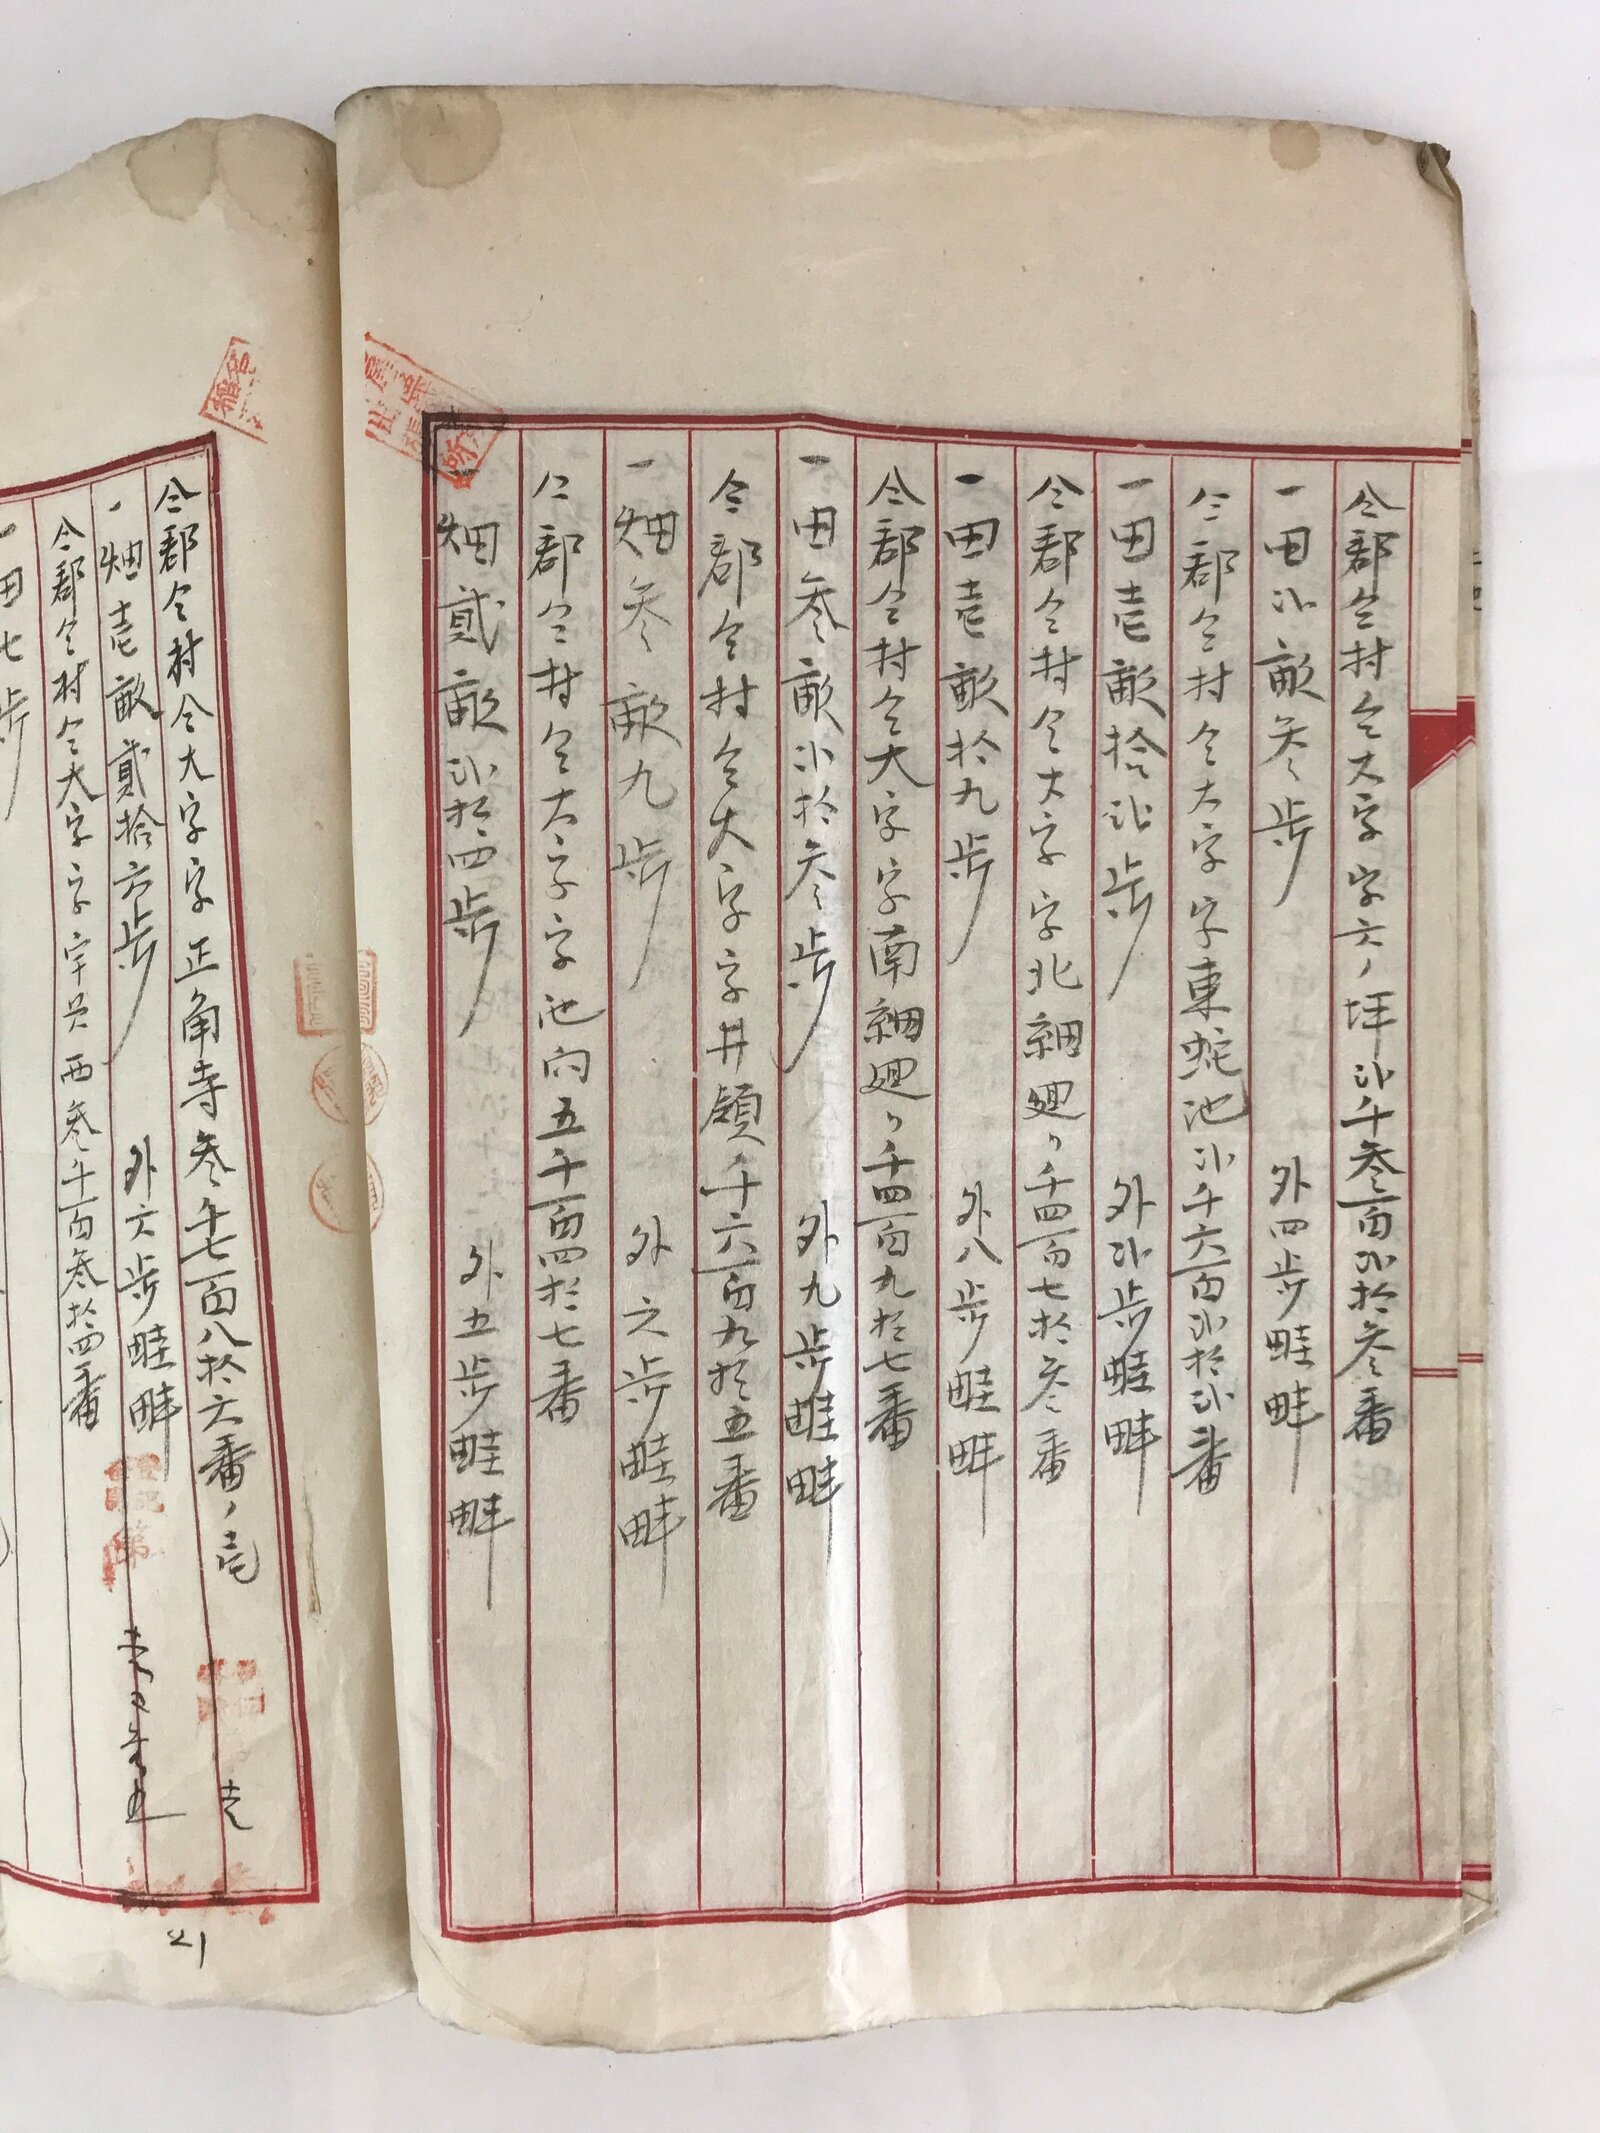 仝郡仝村仝大字字六ノ坪弐千参百弐拾参番
一田弐畝参歩 外四歩畦畔
仝郡仝村仝大字字東蛇池弐千六百弐拾弐番
一田壱畝拾弐歩 外弐歩畦畔
仝郡仝村仝大字字北細廻り千四百七拾参番
一田壱畝拾九歩 外八歩畦畔
仝郡仝村仝大字字南細廻り千四百九拾七番
一田参畝弐拾参歩 外九歩畦畔
仝郡仝村仝大字字井領ノ千六百九拾五番
一畑参畝九歩 外六歩畦畔
仝郡仝村仝大字字池向五千百四拾七番
一畑貮畝弐拾四歩 外五歩畦畔
仝郡仝村仝大字字正角寺参千七百八拾六番ノ壱
一畑壱畝貮拾六歩 外六歩畦畔
仝郡仝村仝大字字西参千百参拾四番
一田七歩
21